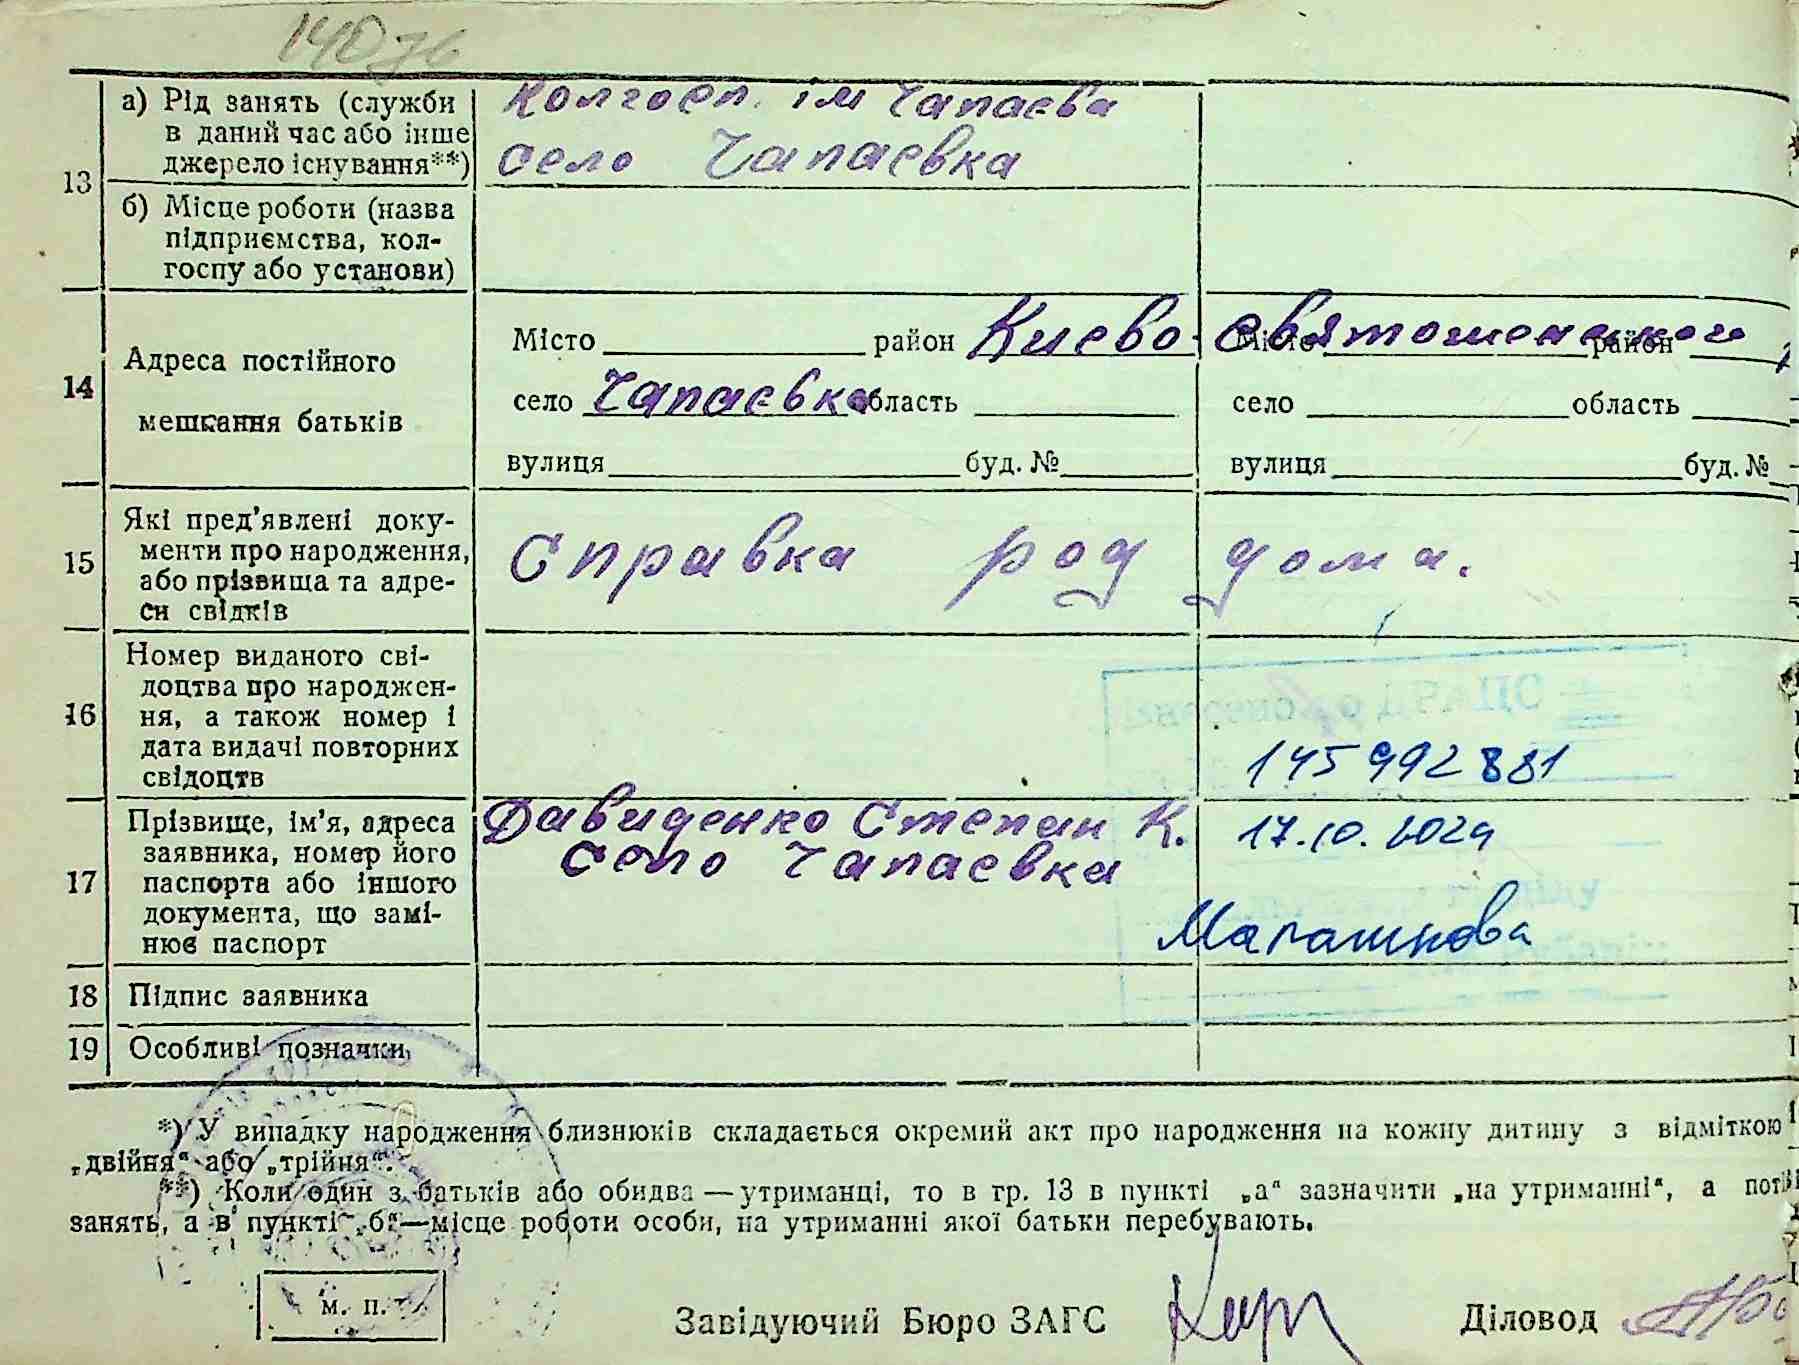 а) Рід занять (служби
в даний час або інше
джерело існування**)
Колгосп. ім Чапаєва
село Чапаєвка
13
б) Місце роботи (назва
підприємства, кол-
госпу або установи)
14
Адреса постійного
мешкання батьків
Місто район Києво-Святошенского Місто район
село Чапаєвка область село область
вулиця буд. № вулиця буд. №
15
Які пред'явлені доку-
менти про народження,
або прізвища та адре-
си свідків
Справка род дома.
16
Номер виданого сві-
доцтва про народжен-
ня, а також номер і
дата видачі повторних
свідоцтв
Внесено до ДРАЦС
145992881
17
Прізвище, ім'я, адреса
заявника, номер його
паспорта або іншого
документа, що замі-
нює паспорт
Давиденко Степан К.
село Чапаєвка
17.10.2024
18 Підпис заявника
19 Особливі позначки
*) У випадку народження близнюків складається окремий акт про народження на кожну дитину з відміткою
„двійня“ або „трійня“.
**) Коли один з батьків або обидва — утриманці, то в гр. 13 в пункті „а“ зазначити „на утриманні“, а
занять, а в пункті „б“ — місце роботи особи, на утриманні якої батьки перебувають.
м. п.
Завідуючий Бюро ЗАГС Діловод